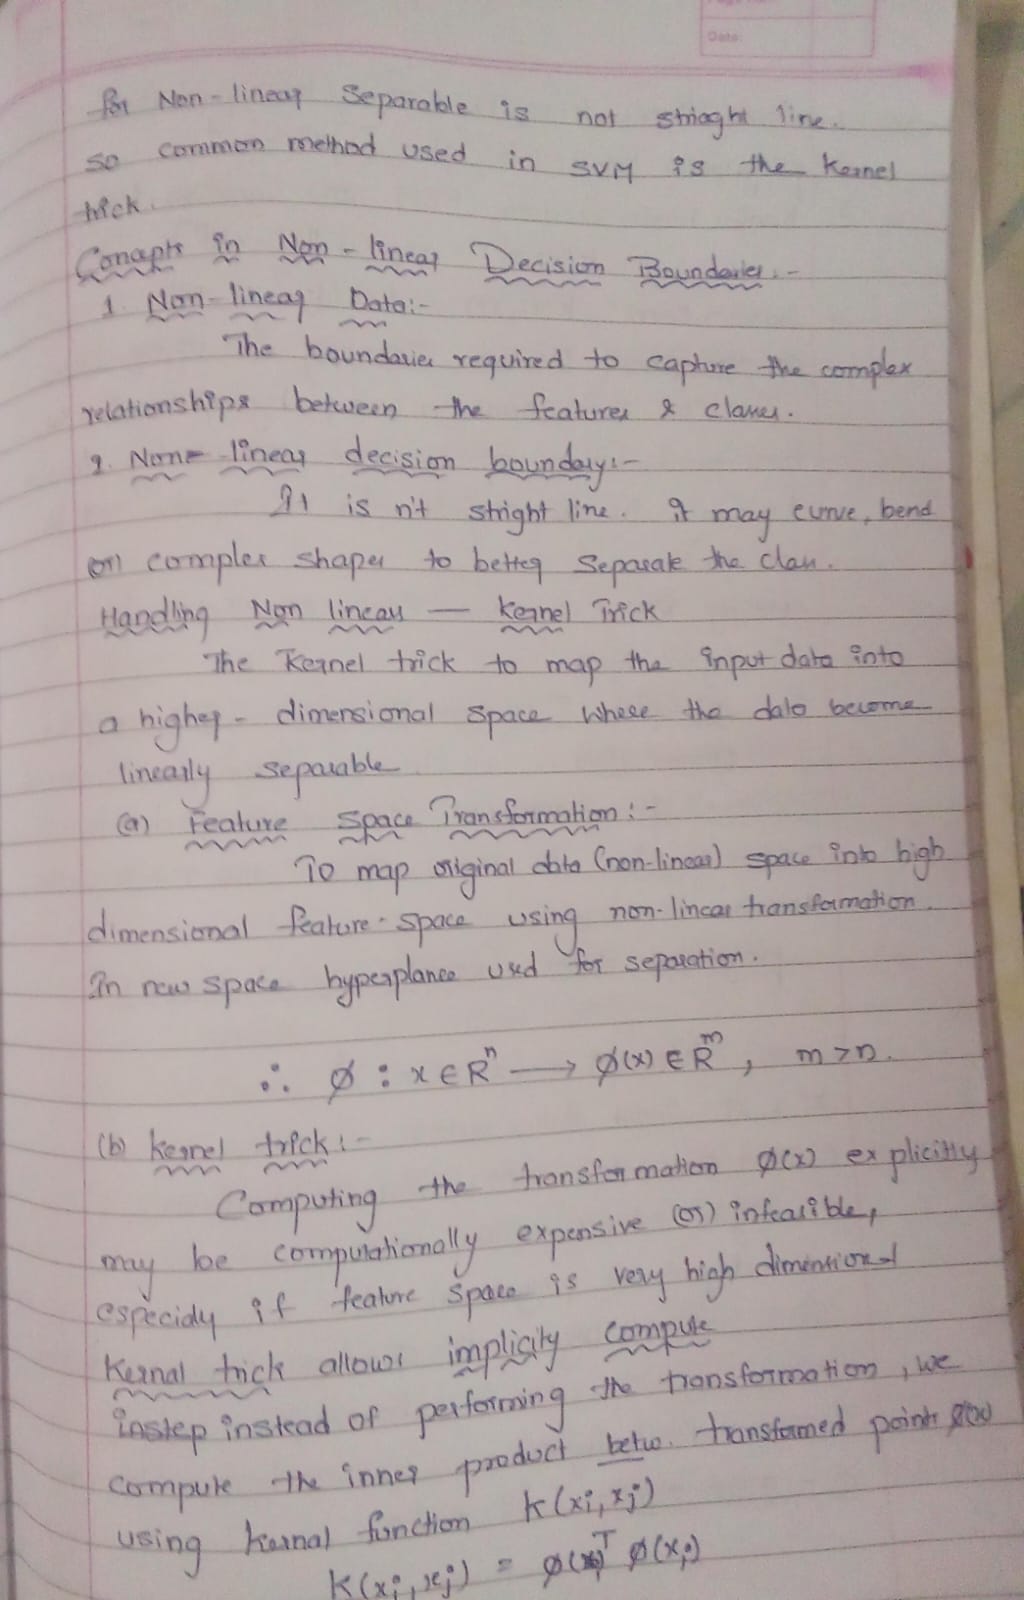 Date:
for Non-linear Separable is not striaght line.
so common method used in SVM is the Kernel
trick.
Concepts in Non-linear Decision Boundaries:-
1. Non-linear Data:-
The boundaries required to capture the complex
relationships between the features & classes.
2. Non-linear decision boundary:-
It is n't stright line. It may curve, bend
or complex shapes to better Separate the class.
Handling Non linear — Kernel Trick
The Kernel trick to map the input data into
a higher-dimensional space where the data become
linearly separable
(a) Feature Space Transformation:-
To map original data (non-linear) space into high
dimensional feature-space using non-linear transformation.
In new space hyperplance used for separation.
∴ ø : x ∈ Rⁿ → ø(x) ∈ Rᵐ, m>n.
(b) Kernel trick:-
Computing the transformation ø(x) explicitly
may be computationally expensive (or) infeasible,
especialy if feature space is very high dimentional
Kernal trick allows implicity compute
instep instead of performing the transformation, we
compute the inner product betw. transformed points ø(x)
using kernal function K(xi, xj)
K(xi, xj) = ø(xi)ᵀ ø(xj)